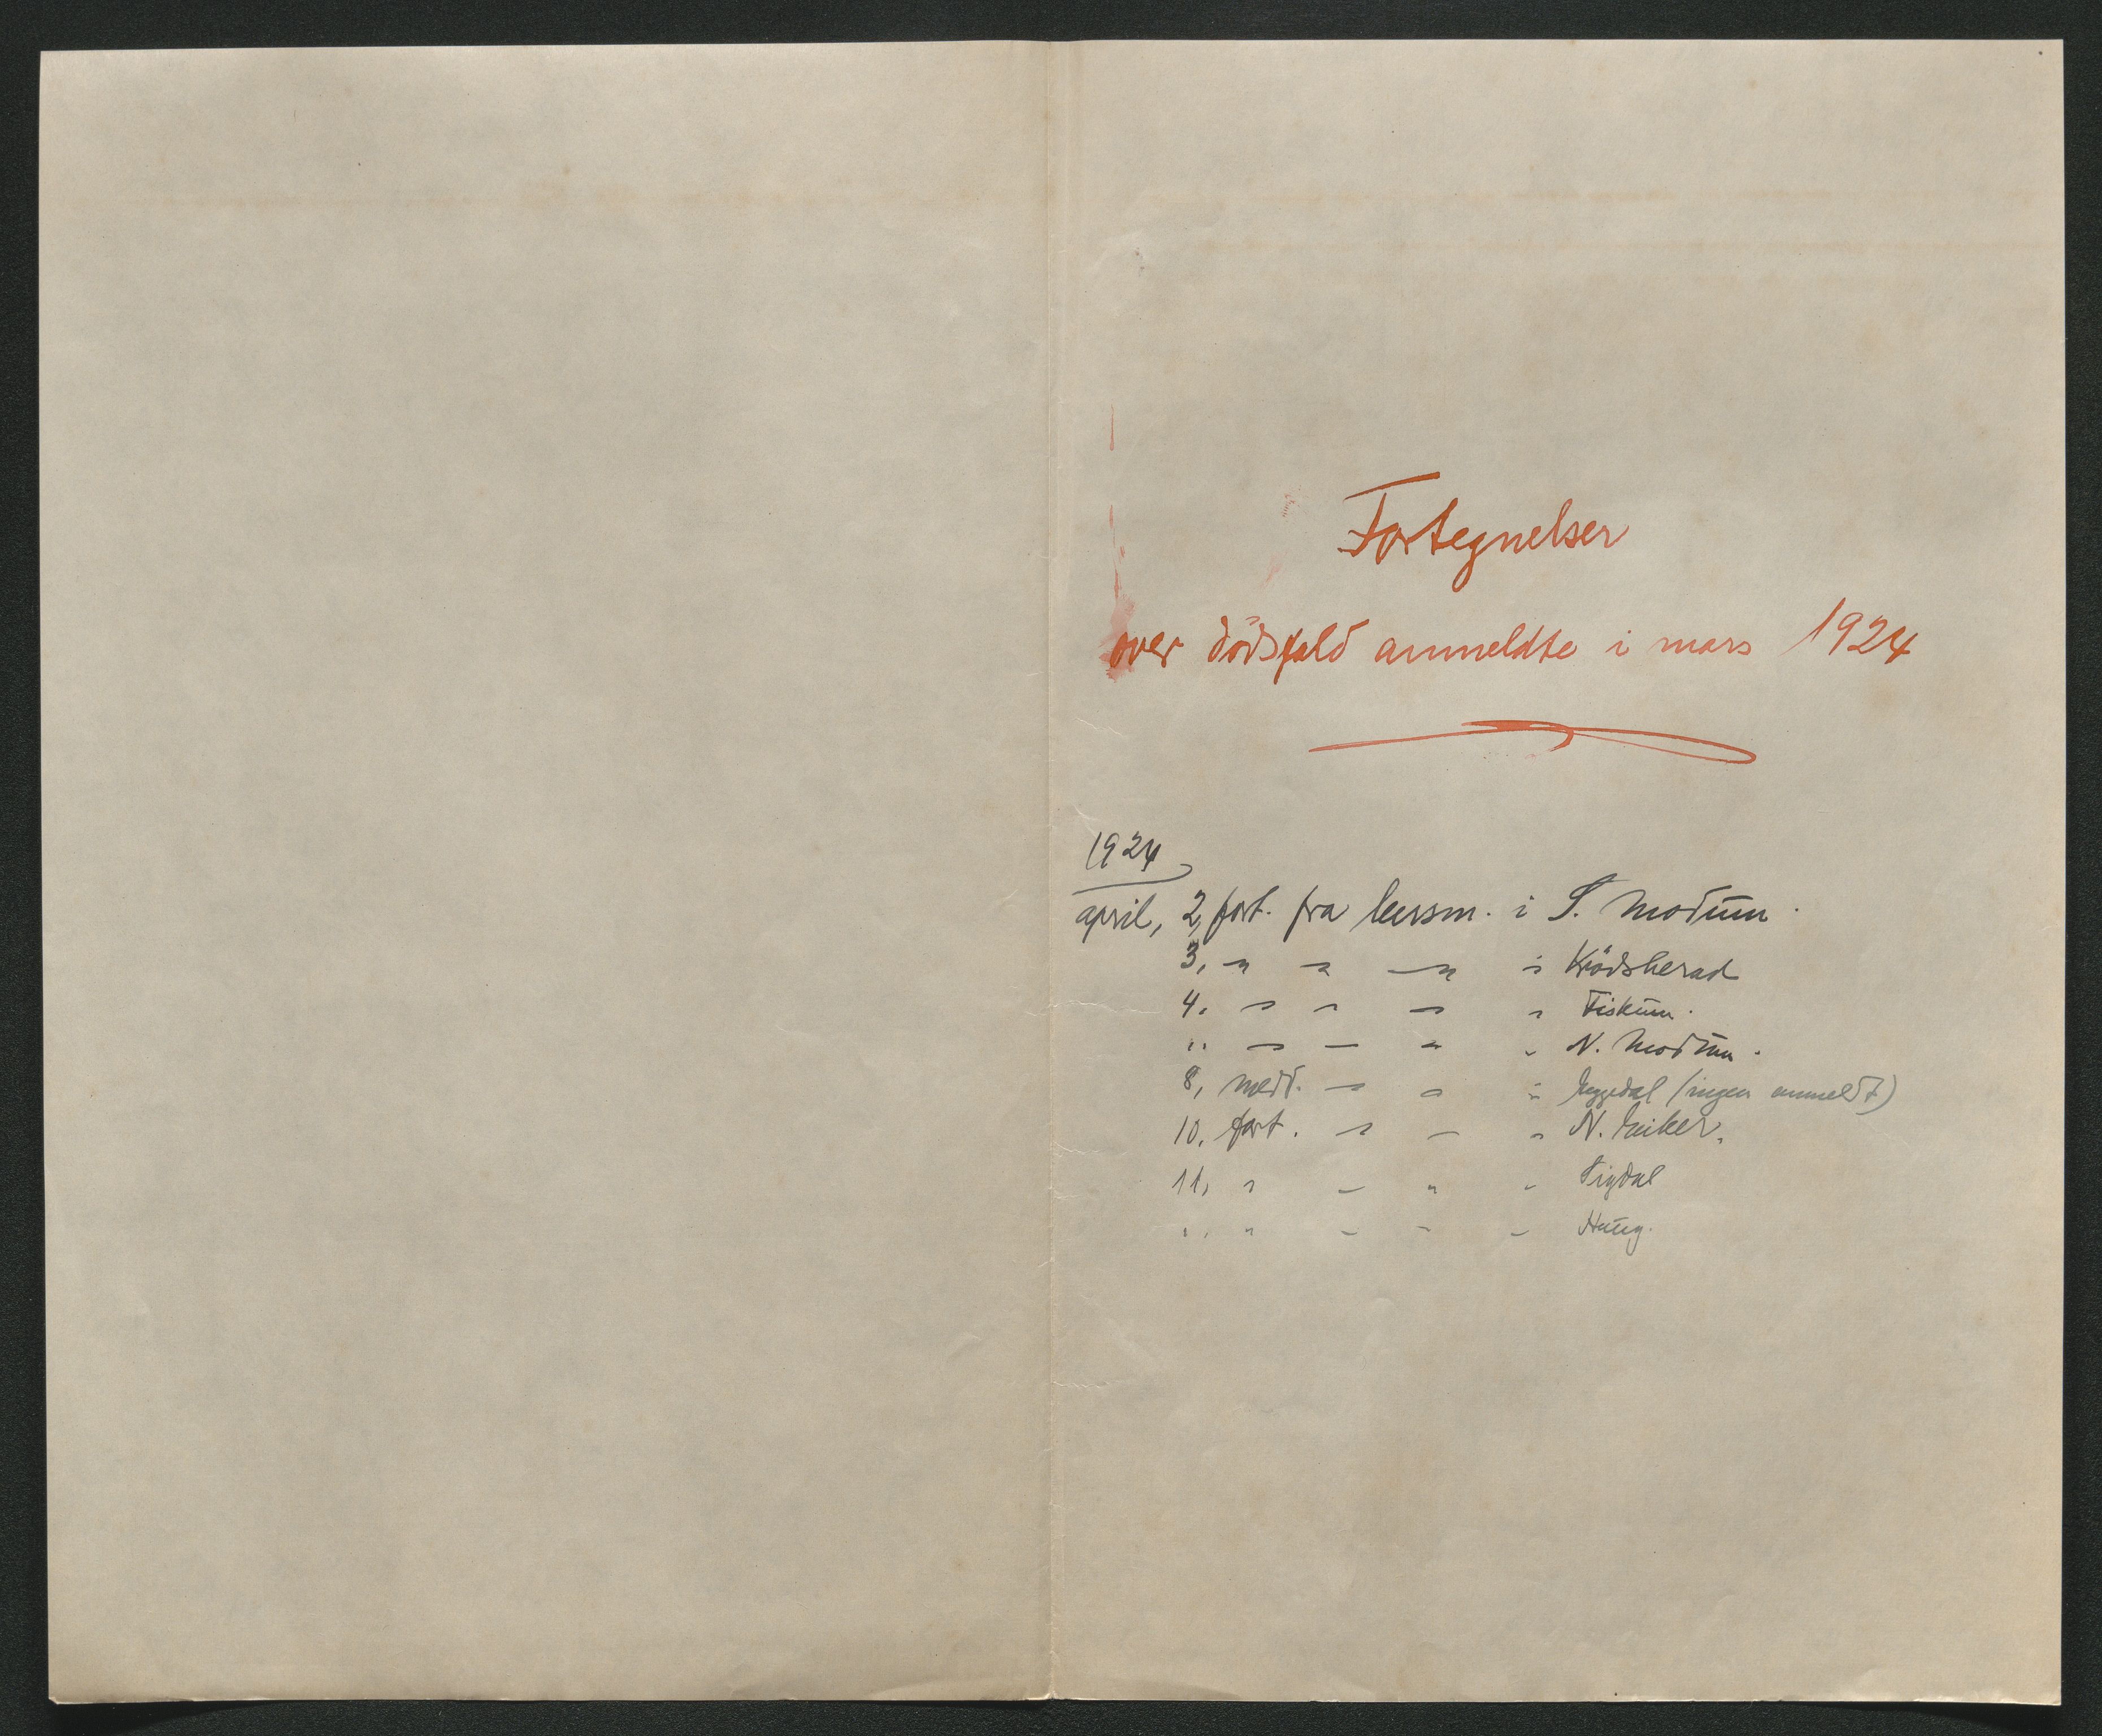 Fortegnelser
over dödsfald anmeldte i mars 1924
1924
april, 2, fort. fra lensm. i S. Modum.
3, " " " i Krödsherad
4. " " " " Fiskum.
" " " " " N. Modum.
8, medd. " " " Eggedal (ingen anmeldt)
10. fort. " " " N. Eiker.
11, " " " " Sigdal
" " " " " Haug.